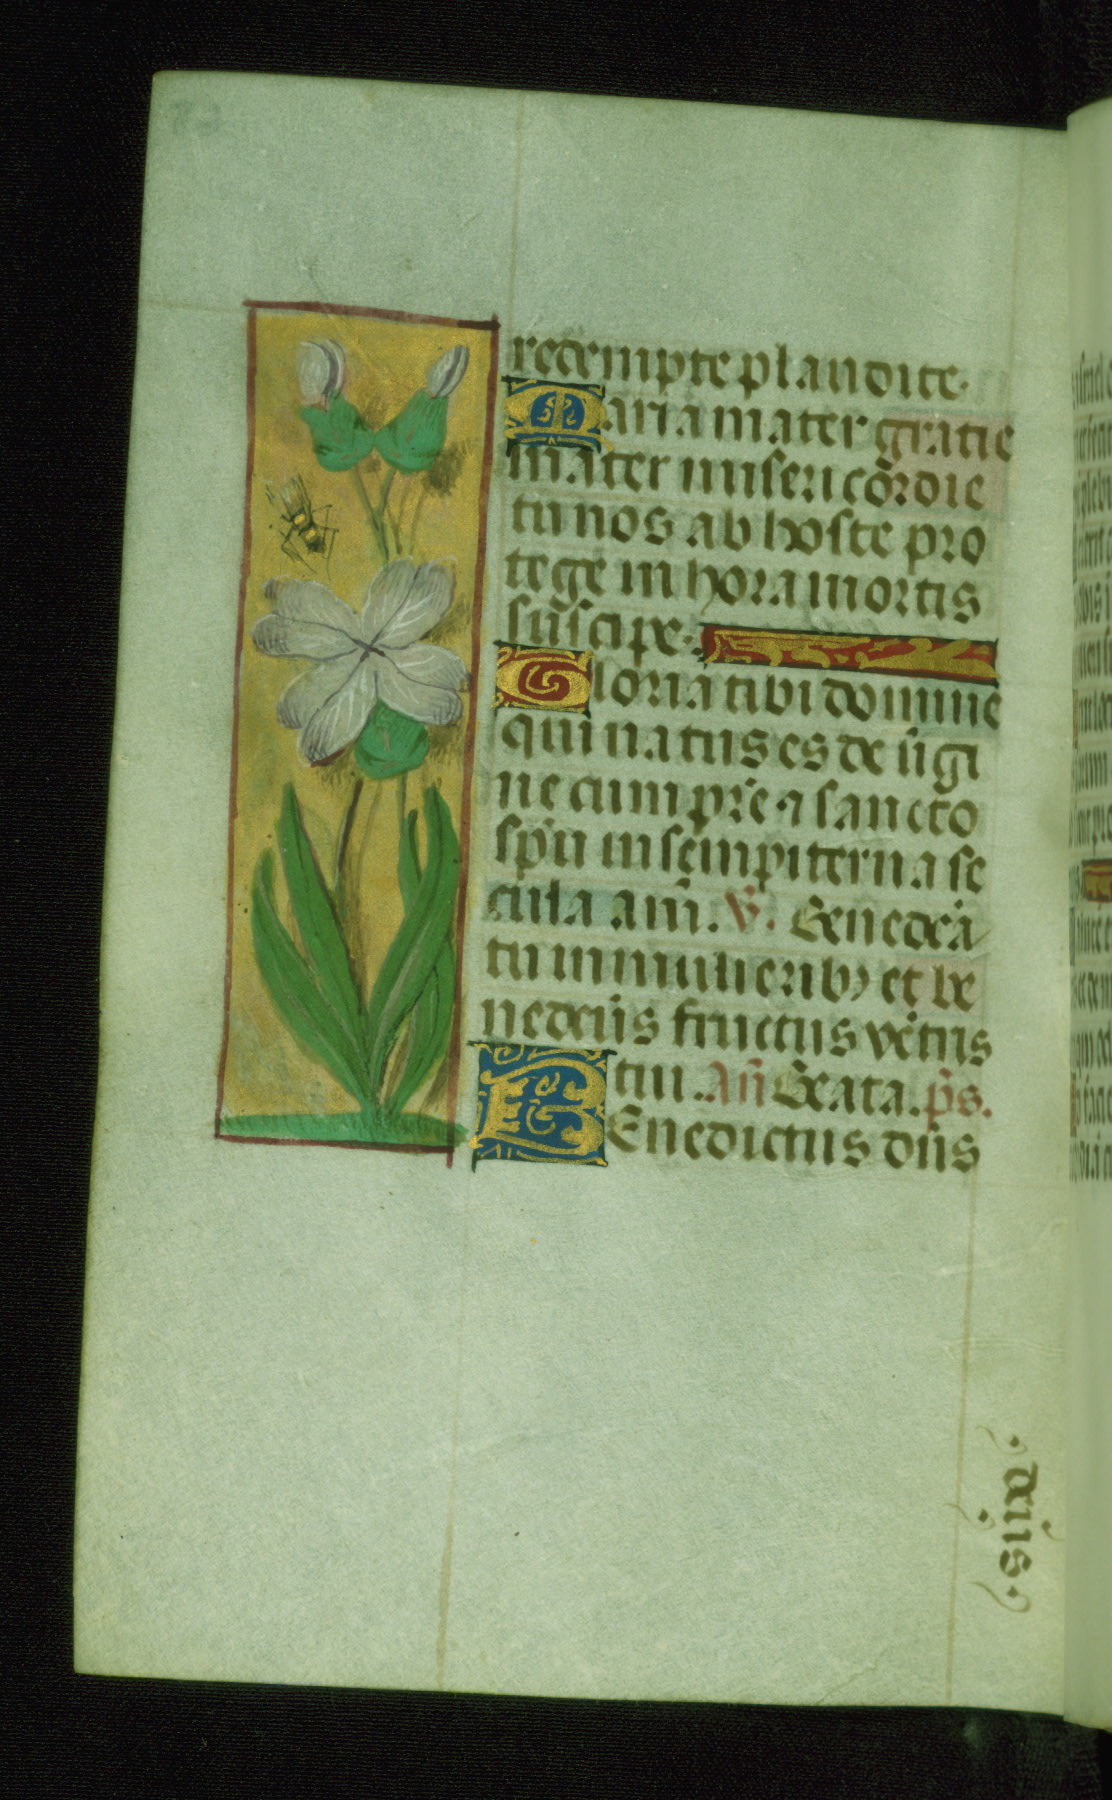 redempte plaudite.
Maria mater gratie
mater misericordie
tu nos ab hoste pro
tege in hora mortis
suscipe.
Gloria tibi domine
qui natus es de v̄gi
ne cum pr̄e ⁊ sancto
sp̄u in sempiterna se
cula am̄. V̄. Benedcā
tu in mulierib⁹ et be
nedcūs fructus vētris
tui. An̄ Beata. p̄s.
BEnedictus dn̄s
deus.